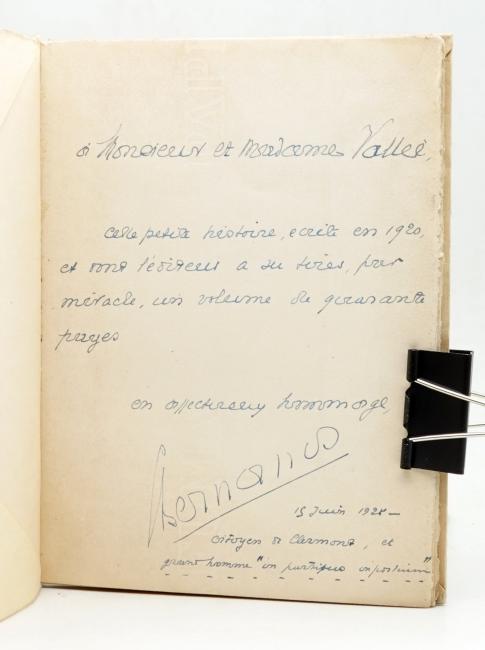 à Monsieur et Madame Vallée,
cette petite histoire, écrite en 1920,
et dont l'éditeur a su tirer, par
miracle, un volume de quarante
pages
en affectueux hommage,
GBernanos
15 Juin 1928 –
citoyen de Clermont, et
grand homme "in partibus infidelium"